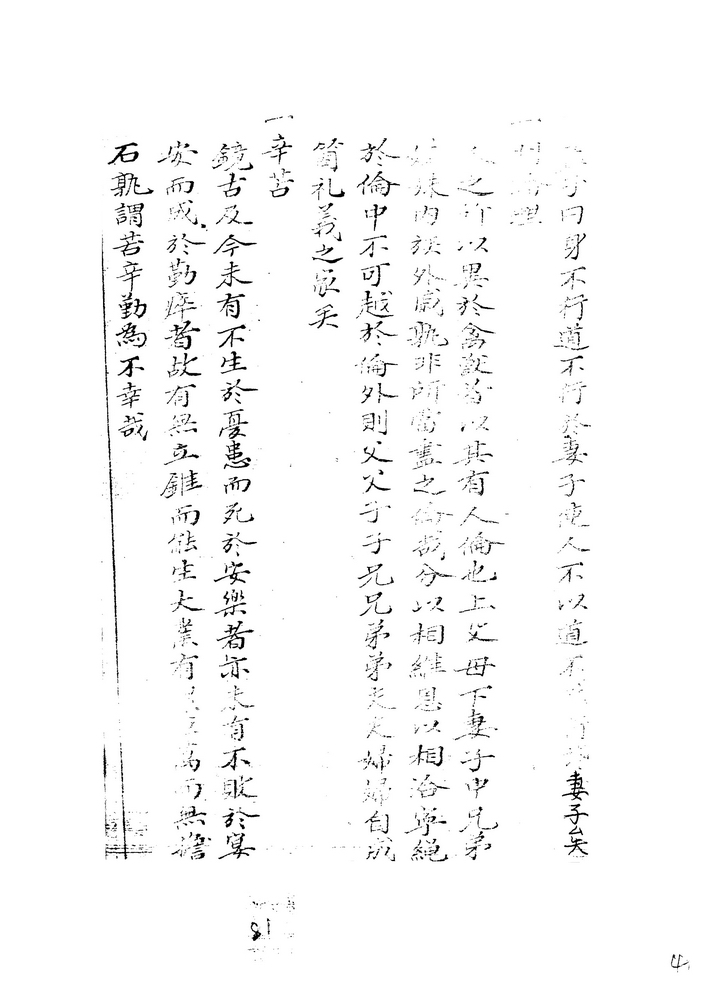 子曰身不行道不行於妻子使人不以道不能行於妻子矣
一
人之所以異於禽獸者以其有人倫也上父母下妻子中兄弟
姊妹內族外戚孰非所當盡之倫哉分以相維恩以相洽準繩
於倫中不可越於倫外則父父子子兄兄弟弟夫夫婦婦自成
箇礼義之家矣
一辛苦
鏡古及今未有不生於憂患而死於安樂者亦未有不敗於宴
安而成於勤瘁者故有無立錐而能生大業有萬而無擔
石孰謂苦辛勤為不幸哉
18
4